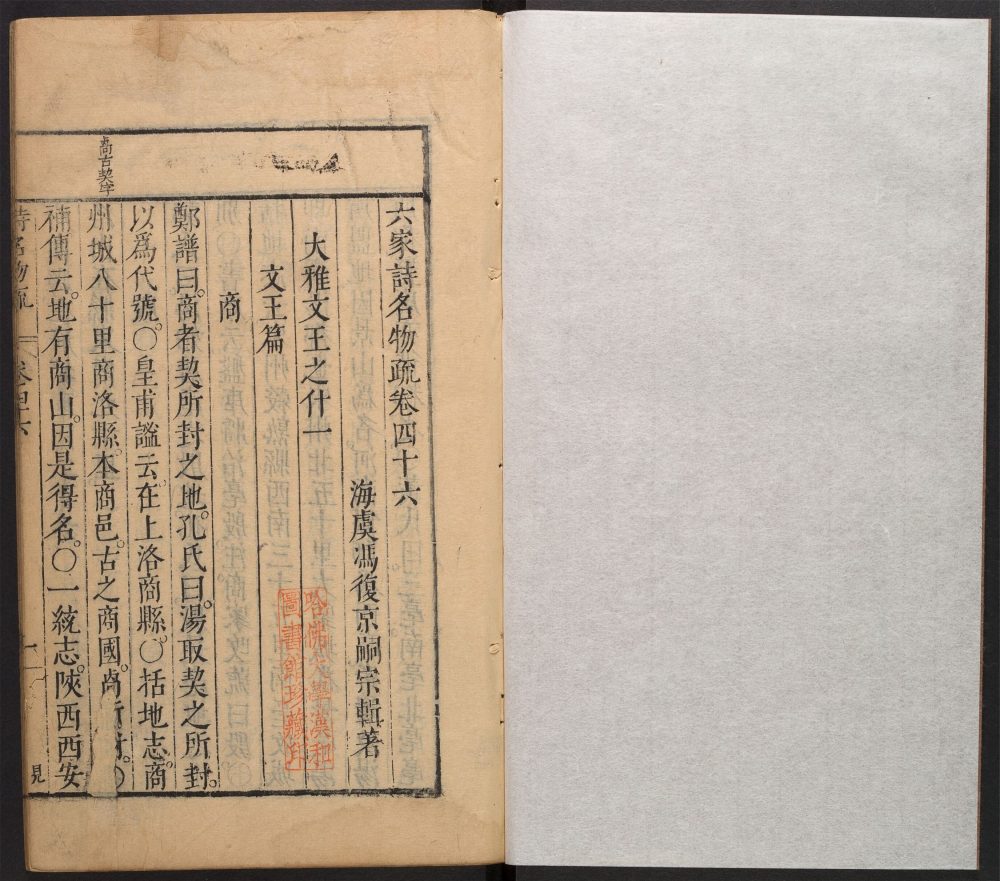 六家詩名物疏卷四十六
海虞馮復京嗣宗輯著
大雅文王之什一
文王篇
商
鄭譜曰。商者契所封之地。孔氏曰。湯取契之所封。
以爲代號。〇皇甫謐云。在上洛商縣。〇括地志。商
州城八十里商洛縣。本商邑。古之商國。所封。〇
補傳云。地有商山。因是得名。〇一統志。陝西西安
詩名物疏
卷四六
一
見
古契字
哈佛大學漢和
圖書館珍藏印